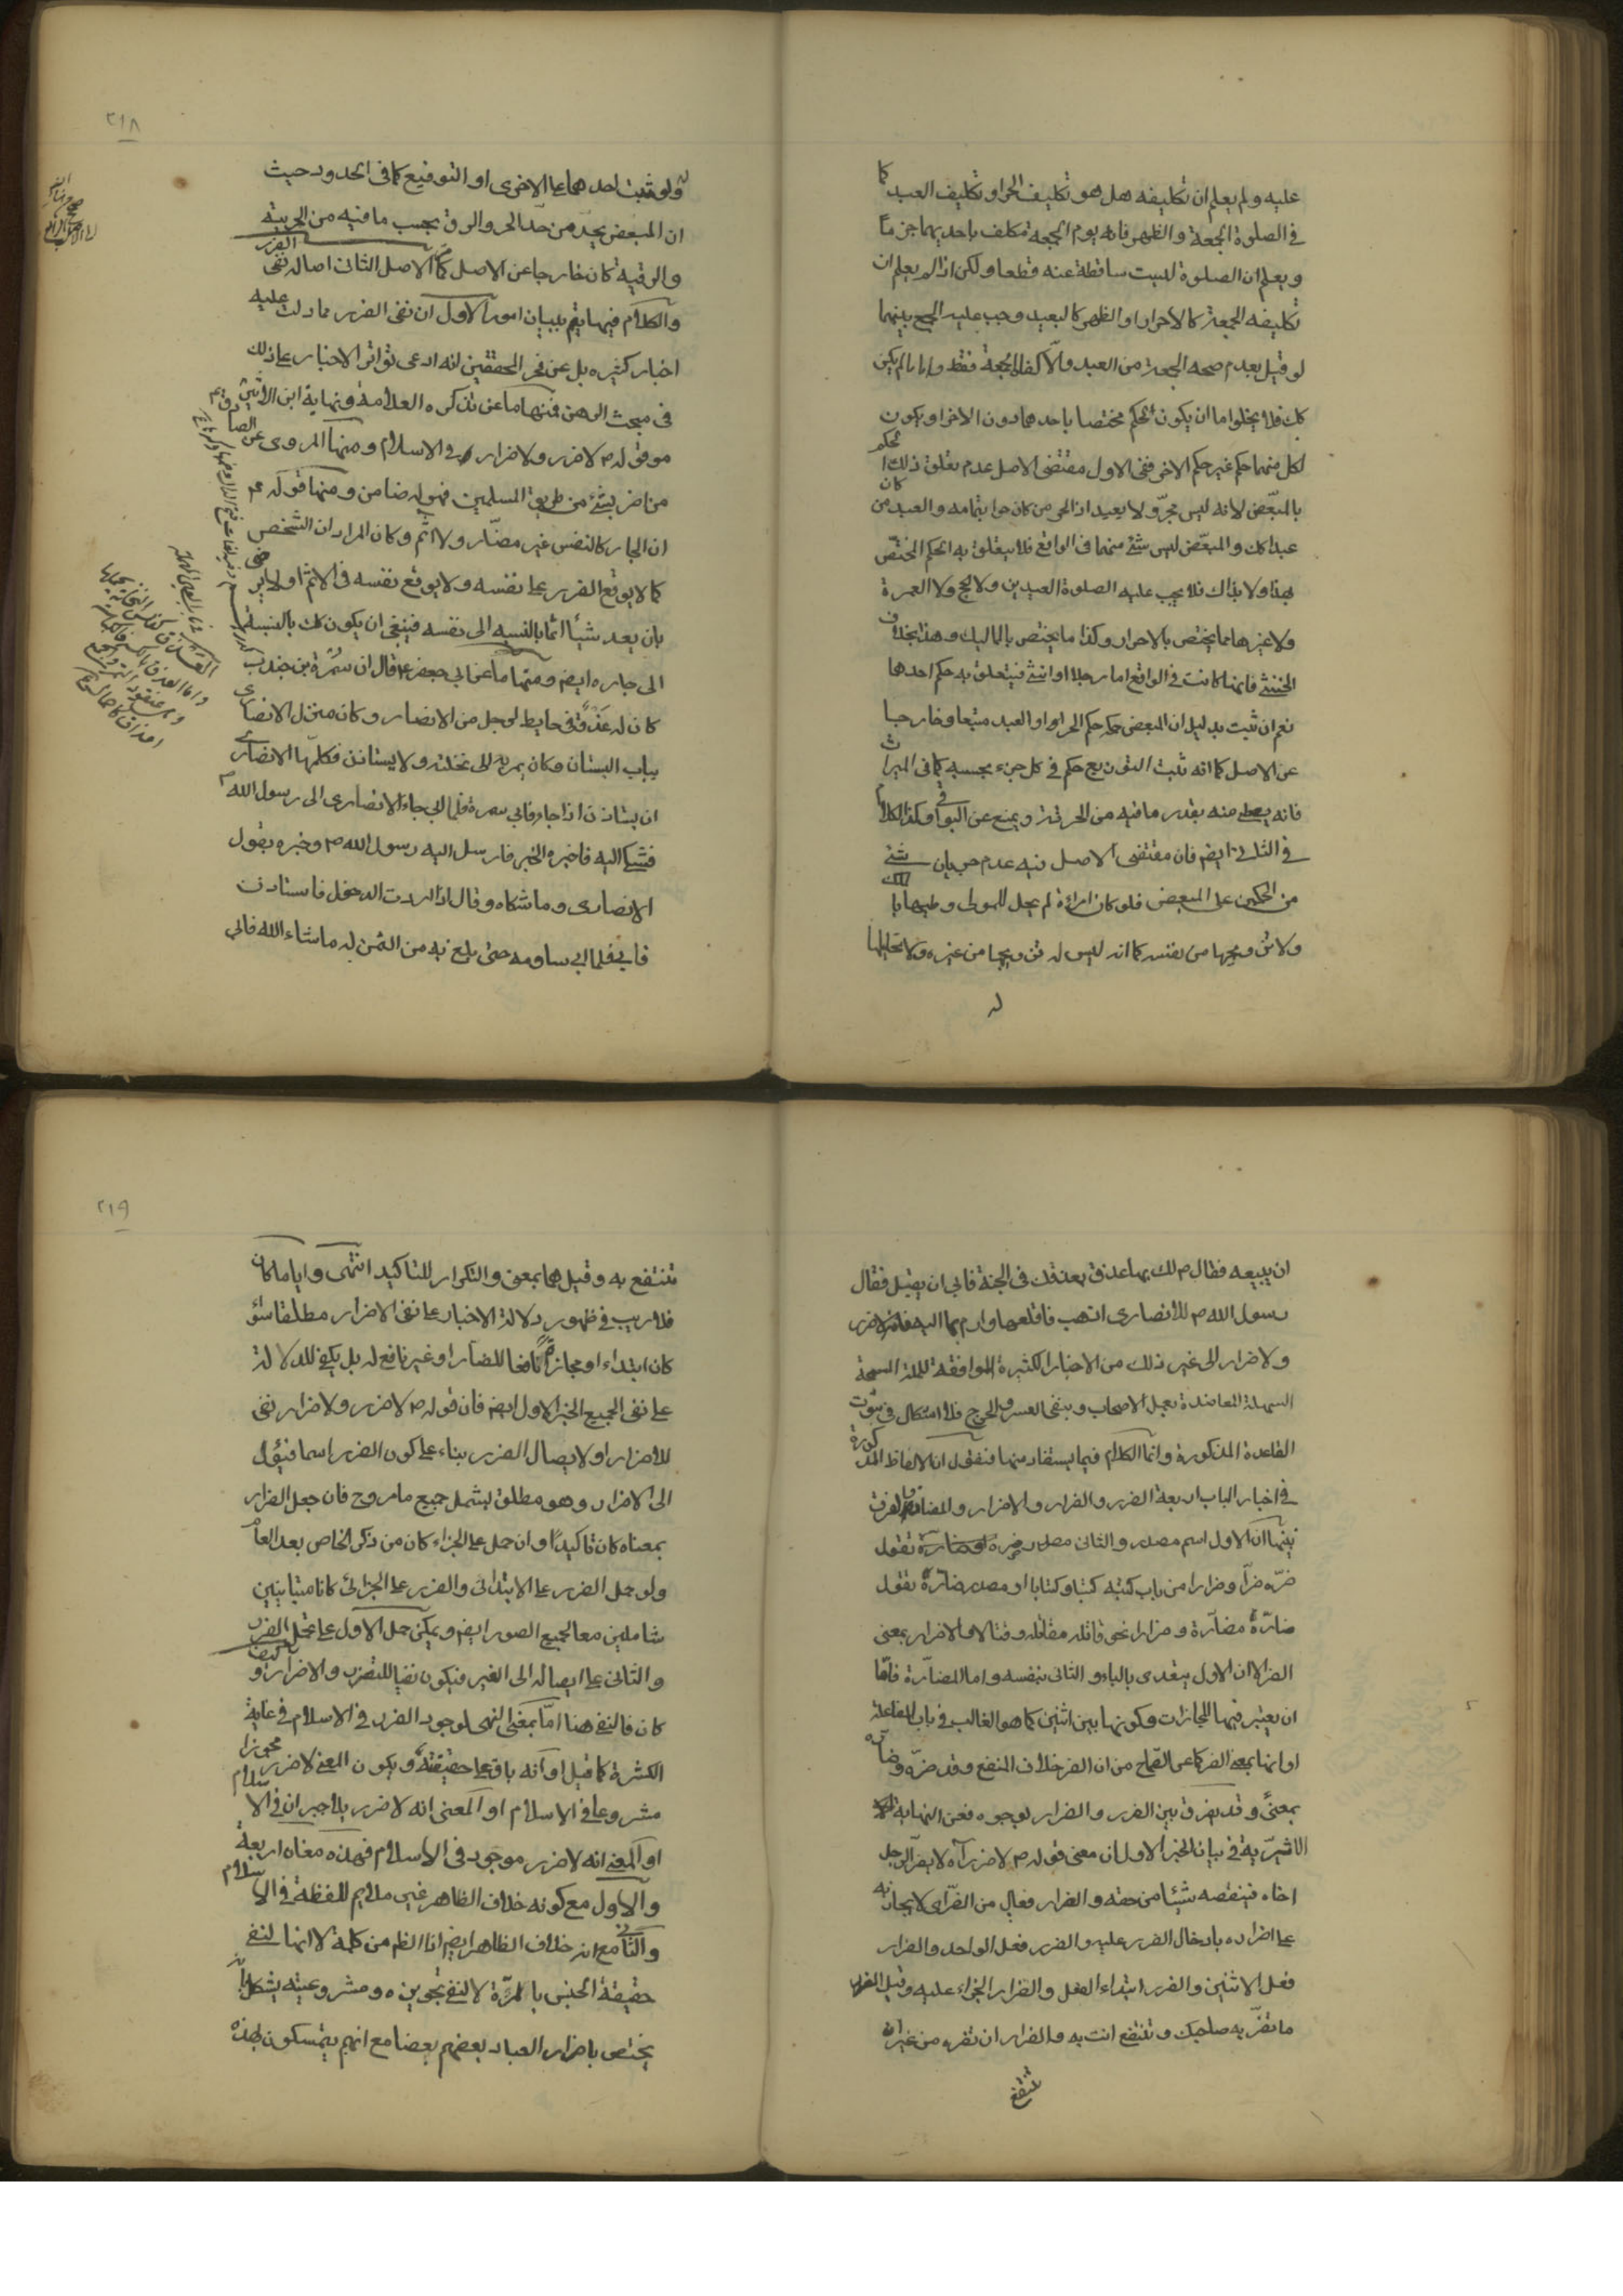 عليه ولم يعلم ان تكليفه هل هو تكليف الحر او تكليف العبد كما
في الصلوة الجمعة والظهر فانه يوم الجمعة مكلف باحديهما جزمًا
ويعلم ان الصلوة ليست ساقطة عنه قطعا ولكن اذا لم يعلم ان
تكليفه الجمعة كالاحرار او الظهر كالبعيد وجب عليه الجمع بينهما
لو قيل بعدم صحه الجمعة من العبد والّا كفاه الجمعة فقط واما ما لم يكن
كك فلا يخلوا ما ان يكون الحكم مختصا باحدهما دون الاخر او يكون
لكل منهما حكم غير حكم الاخر ففي الاول مقتضى الاصل عدم تعلق ذلك الحكم
بالمبعّض لانه ليس بحرّ ولا بعبد اذ الحر من كان حرا بتمامه والعبد من كان
عبدا كك والمبعّض ليس شئ منهما في الواقع فلا يتعلق به الحكم المختصّ
بهذا ولا بذاك فلا يجب عليه الصلوة العيدين ولا الحج ولا العمرة
ولا غيرها مما يختص بالاحرار وكذا ما يختص بالمماليك وهذا بخلاف
الخنثى فانها كانت في الواقع اما رجلا او انثى فيتعلق به حكم احدهما
نعم ان ثبت بدليل ان المبعض حكمه حكم الحر او العبد متبعا وخارجا
عن الاصل كما انه ثبت التوزيع حكم في كل جزء بحسبه كما في الميراث
فانه يعطى منه بقدر ما فيه من الحرية ويمنع عن البواقي وكذا الكلام
في الثاني ايضم فان مقتضى الاصل فيه عدم جريان شئ
من الحكمين على المبعض فلو كان امراءة لم يحل للمولى وطيها بالملك
ولا تزويجها من نفسه كما انه ليس له تزويجها من غيره ولا تحليلها
له
٢١٨
ولو ثبت احدهما على الاخرى او التوقيع كما في الحدود حيث
ان المبعض يحدّ من حدّ الحر والرق بحسب ما فيه من الحرية
والرقية كان خارجا عن الاصل كما مر الاصل الثاني اصالة نفى الضرر
والكلام فيها يتم ببيان امور الاول ان نفى الضرر مما دلت عليه
اخبار كثيره بل عن فخر المحققين انه ادعى تواتر الاخبار على ذلك
في مبحث الرهن فمنها ما عن تذكره العلامة ونهاية ابن الاثير
من قوله ص لا ضرر ولا ضرار في الاسلام ومنها المروى عن الصادق ع
من اضر بشئ من طريق المسلمين فهو له ضامن ومنها قوله ع
ان الجار كالنفس غير مضارّ ولا اثم وكان المراد ان الشخص
كما لا يوقع الضرر على نفسه ولا يوقع نفسه في الاثم او لا يرضى
بان يعد شيئا اثما بالنسبه الى نفسه فينبغى ان يكون كك بالنسبة
الى جاره ايضم ومنها ما عن ابي جعفر ع قال ان سَمُرَة بن جندب
كان له عَذق في حايط لرجل من الانصار وكان منزل الانصارى
بباب البستان وكان يمر به الى نخلته ولا يستاذن فكلّمه الانصارى
ان يستاذن اذا جاء فابى سمرة فلما ابي جاء الانصارى الى رسول الله ص
فشكى اليه فاخبره الخبر فارسل اليه رسول الله ص وخبره بقول
الانصارى وما شكاه وقال اذا اردت الدخول فاستاذن
فابى فلما ابى ساومه حتى بلغ به من الثمن له ما شاء الله فابي
ان يبيعه فقال ص لك بها عذق بعذقك في الجنة فابي ان يقبل فقال
رسول الله ص للانصارى اذهب فاقلعها وارم بها اليه فانه لا ضرر
ولا ضرار الى غير ذلك من الاخبار الكثيرة الموافقة للملة السمحة
السهلة المعاضدة بعمل الاصحاب وبنفى العسر والحرج فلا اشكال في ثبوت
القاعدة المذكورة وانما الكلام فيما يستفاد منها فنقول ان الالفاظ المذكورة
في اخبار الباب اربعة الضرر والضرار والاضرار والمضارة والفرق
بينها ان الاول اسم مصدر والثاني مصدر ضره تقول
ضرّه ضرّا وضرارا من باب كتبه كتبا وكتابا او مصدر ضارّه تقول
ضارّة مضارّة وضرارا نحو قاتله مقاتلة وقتالا والاضرار بمعنى
الضر الا ان الاول يتعدى بالباء والثاني بنفسه واما المضارّة فامّا
ان يعتبر فيها المجازات وكونها بين اثنين كما هو الغالب في باب المفاعلة
او انها بمعنى الضر كما عن الصّحاح من ان الضر خلاف النفع وقد ضرّه وضارّه
بمعنًى وقد يفرق بين الضرر والضرار بوجوه فعن النهاية
الاثيريّة في بيان الخبر الاول ان معنى قوله ص لا ضرر اى لا يضرّ الرجل
اخاه فينقصه شيئا من حقه والضرار فعال من الضرّ اى لا يجازيه
على اضراره بادخال الضرر عليه والضرر فعل الواحد والضرار
فعل الاثنين والضرر ابتداء الفعل والضرار الجزاء عليه وقيل الضرر
ما تضرّ به صاحبك وتنتفع انت به والضرار ان تضره من غير ان
تنتفع
٢١٩
تنتفع به وقيل هما بمعنى والتكرار للتاكيد انتهى وايا ما كان
فلا ريب في ظهور دلالة الاخبار على نفى الاضرار مطلقا سوا
كان ابتداء او مجازاة نافعا للضار او غير نافع له بل يكفى للدلالة
على نفى الجميع الخبر الاول ايضم فان قوله ص لا ضرر ولا ضرار نفى
للاضرار او لايصال الضرر بناء على كون الضرر اسما فيؤل
الى الاضرار وهو مطلق ليشمل جميع ما مر وح فان جعل الضرار
بمعناه كان تاكيدًا وان حمل على الجزاء كان من ذكر الخاص بعد العام
ولو حمل الضرر على الابتدائى والضرر على الجزائى كانا متباينين
شاملين معا لجميع الصور ايضم ويمكن حمل الاول على تحمل الضرر
والثاني على ايصاله الى الغير فيكون نفيا للتضرر والاضرار وكيف
كان فالنفى هنا امّا بمعنى النهى لوجود الضرر في الاسلام في غاية
الكثرة كما قيل او انه باق على حقيقته ويكون المعنى لا ضرر مجوزا
مشروعا في الاسلام او المعنى انه لا ضرر بلا جبران في الاسلام
او المعنى انه لا ضرر موجود في الاسلام فهذه معان اربعة
والاول مع كونه خلاف الظاهر غير ملايم للفظة في الاسلام
والثاني مع انه خلاف الظاهر ايضم اذا الظم من كلمة لا انها لنفى
حقيقة الجنس بالمرّة لا لنفى تجويزه ومشروعيته يشكل بانه
يختص باضرار العباد بعضهم بعضا مع انهم يتمسكون بهذه